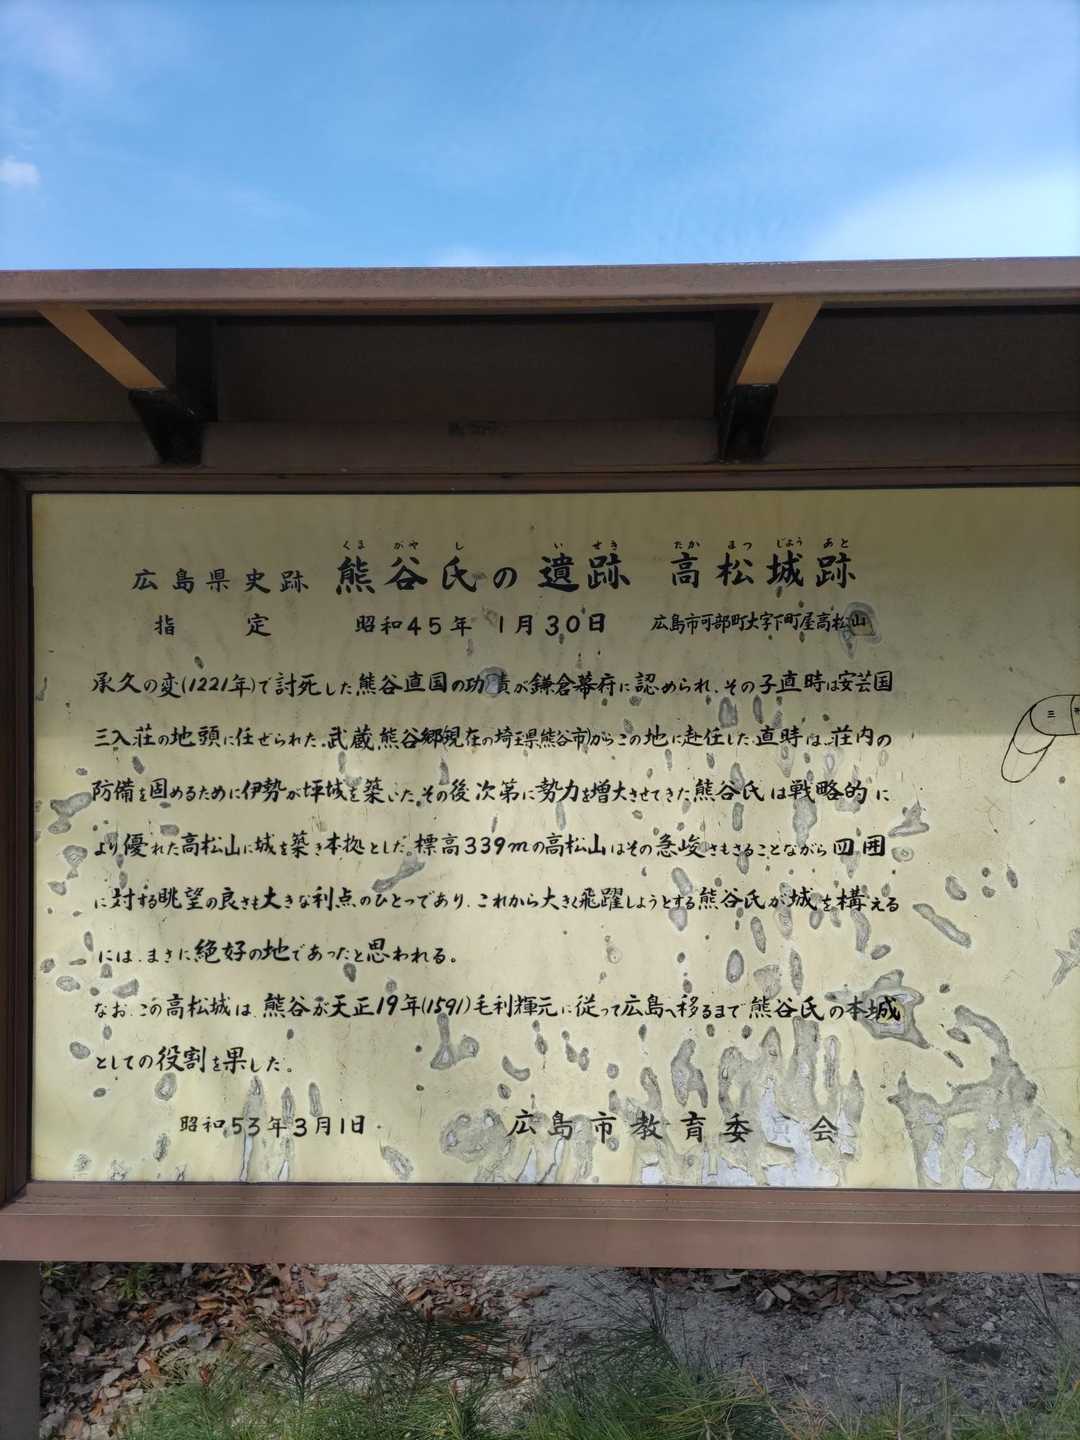 くま がや し い せき たか まつ じょう あと
広島県史跡 熊谷氏の遺跡 高松城跡
指 定 昭和45年 1月30日 広島市可部町大字下町屋高松山
承久の変(1221年)で討死した熊谷直国の功績が鎌倉幕府に認められ、その子直時は安芸国
三入荘の地頭に任ぜられた。武蔵熊谷郷(現在の埼玉県熊谷市)からこの地に赴任した直時は、荘内の
防備を固めるために伊勢が坪城を築いた。その後次第に勢力を増大させてきた熊谷氏は戦略的に
より優れた高松山に城を築き本拠とした。標高339mの高松山はその急峻さもさることながら四囲
に対する眺望の良さも大きな利点のひとつであり、これから大きく飛躍しようとする熊谷氏が城を構える
には、まさに絶好の地であったと思われる。
なお、この高松城は、熊谷が天正19年(1591)毛利輝元に従って広島へ移るまで熊谷氏の本城
としての役割を果した。
昭和53年3月1日 広島市教育委 会
三